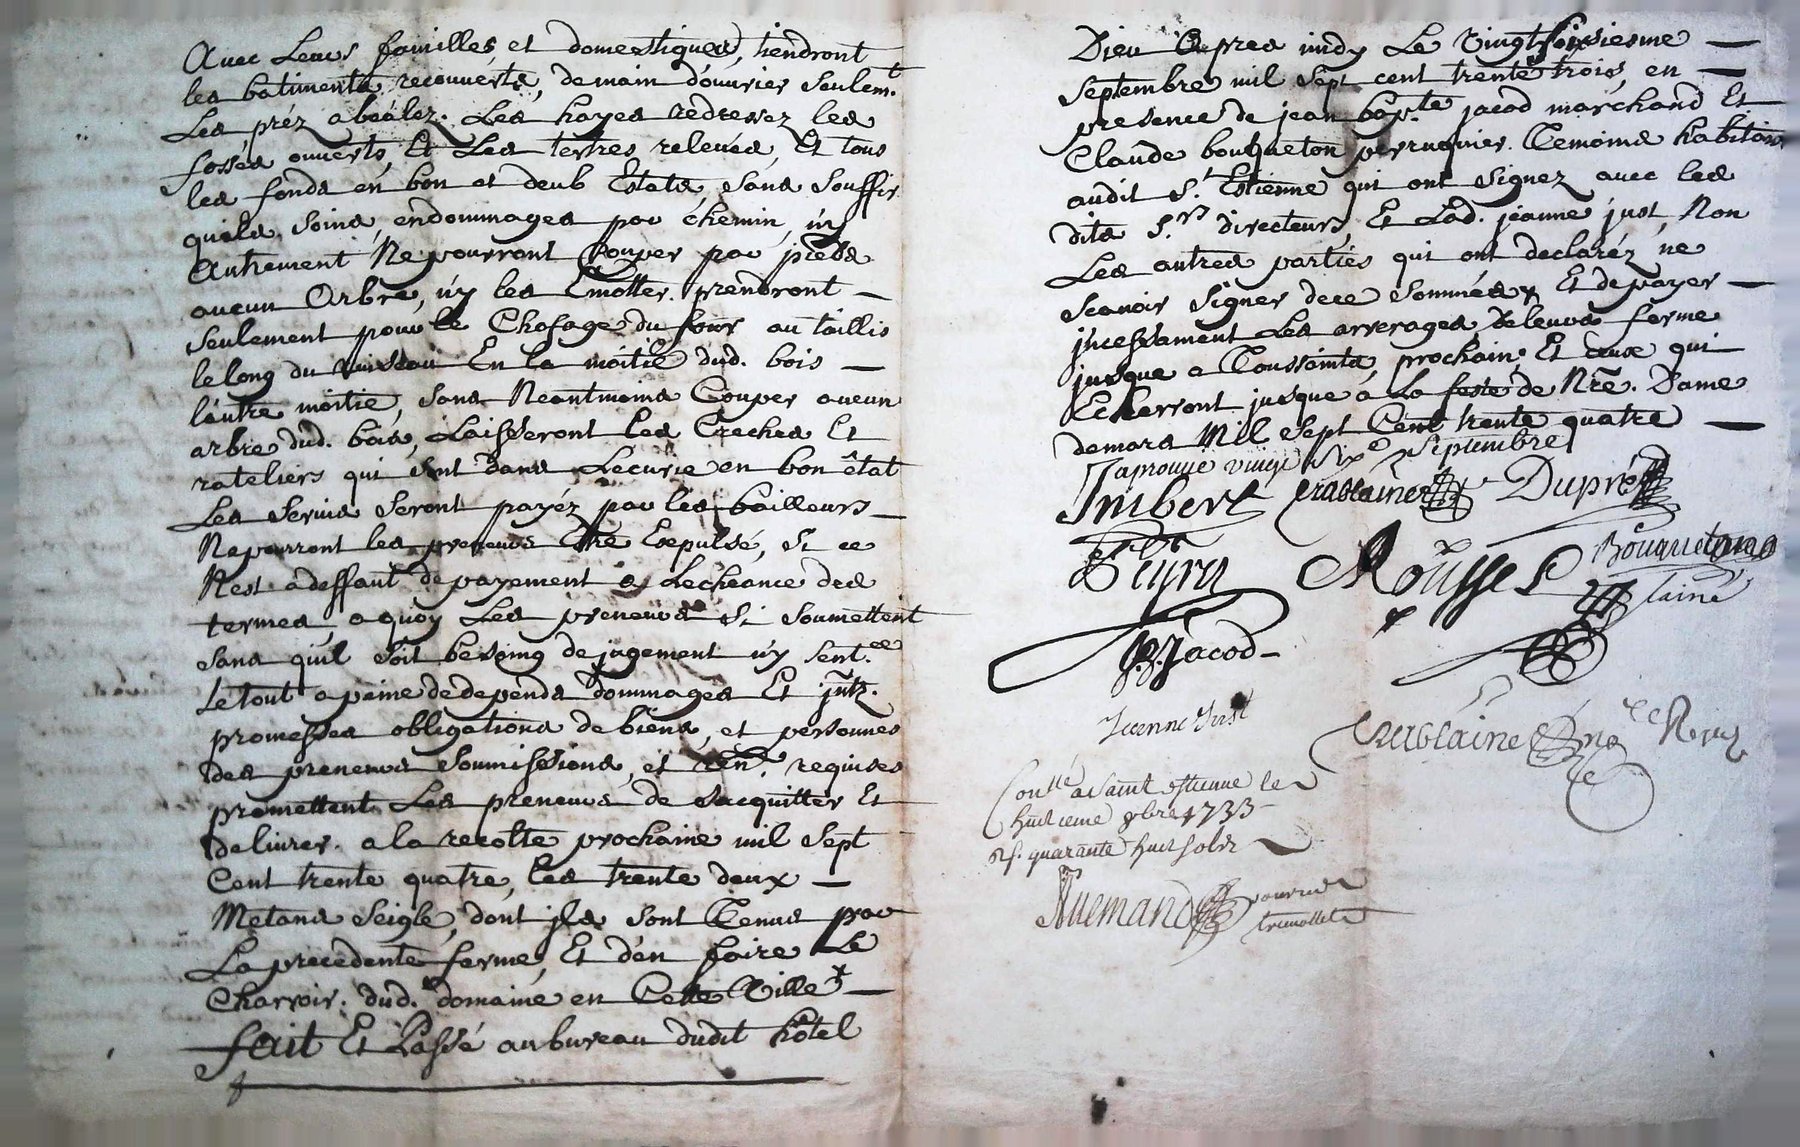 Avec Leurs familles et domestiques, tiendront
les batiments recouverts, demain d'ouvrier seulem.t
Les préz abéalez. Les hayes redressez les
fossés ouverts, Et Les tertres relevés, Et tous
les fonds en bon et deub Estats, sans souffrir
quils soins, endommages par chemin, ny
Autrement Ne pourront Couper par pieds
aucun Arbre, ny les Emotter. prendront —
seulement pour le Chofage du four au taillis
le long du ruisseau En la moitié dud. bois —
l'autre moitié, sans Neantmoins Couper aucun
arbre dud. bois, Laisseront les Creches Et
rateliers qui sont dans Lecurie en bon êtat
Les servis seront payéz par les bailleurs —
Ne pourront les preneurs Etre Expulsé, si ce
N'est a deffaut de payement a Lecheance des
termes, a quoy Les preneurs si soumettent
sans quil soit besoing de jugement ny sent.ce
Le tout a peine de depends dommages Et jntz.
promesses obligations de biens, et personnes
des preneurs soumissions, et ren.on requises
promettent Les preneurs de sacquitter Et
delivrer. a la recolte prochaine mil sept
Cent trente quatre, les trente deux —
Metans seigle, dont jls sont Tenus par
La precedente ferme, Et d'en faire Le
Charroir. dud. domaine en Cette Ville —
fait Et Passé au bureau dudit hôtel
Dieu Apres midy Le Vingt sixiesme —
Septembre mil sept cent trente trois, en —
presence de jean bap.te jacod marchand Et
Claude bousqueton perruquier. Temoins habitans
audit S.t Estienne qui ont signez avec les
dits S.rs directeurs, Et Lad. jeanne just Non
Les autres parties qui ont declaréz ne
scavoir signer de ce sommés, Et de payer —
jncessament Les arrerages de leurs ferme
jusque a Toussaints, prochain, Et ceux qui
Echerront jusque a La feste de N.re Dame
de mars Mil sept Cent trente quatre —
Japrouve vingt six septembre
Imbert Crablaine Dupré
Peyret Rousset Bouqueton
laine
JB. Jacod
Jeanne Just
Crablaine
Con.lle a Saint estienne le
huit ieme 8bre 1733
R. quarante huit solz
Allemand